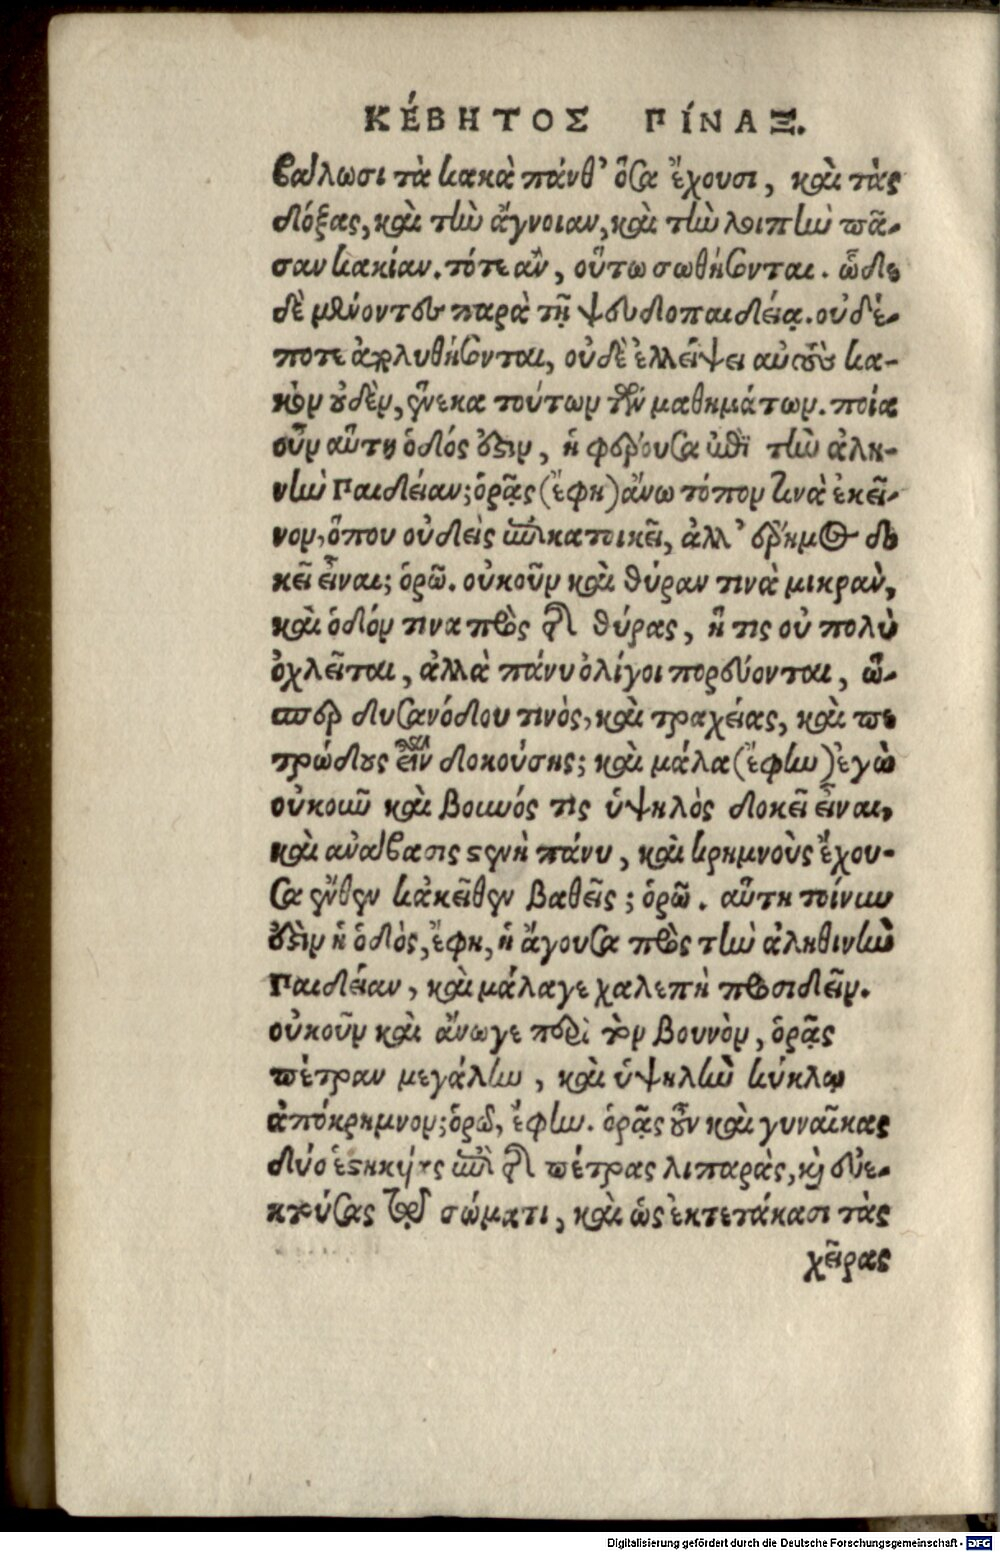 ΚΈΒΗΤΟΣ ΠΊΝΑΞ.
βάλωσι τὰ κακὰ πάνθ' ὅσα ἔχουσι, καὶ τὰς
δόξας, καὶ τὴν ἄγνοιαν, καὶ τὴν λοιπὴν πᾶ-
σαν κακίαν. τότε ἂν, οὕτω σωθήσονται. ὧδε
δὲ μένοντες παρὰ τῇ ψευδοπαιδείᾳ. οὐδέ-
ποτε ἀπολυθήσονται, οὐδὲ ἐλλείψει αὐτοὺς κα-
κὸν οὐδὲν, ἕνεκα τούτων τῶν μαθημάτων. ποία
οὖν αὕτη ὁδός ἐστιν, ἡ φέρουσα ἐπὶ τὴν ἀλη-
νὴν Παιδείαν; ὁρᾷς (ἔφη) ἄνω τόπον τινὰ ἐκεῖ-
νον, ὅπου οὐδεὶς ἐπικατοικεῖ, ἀλλ' ἔρημος δο
κεῖ εἶναι; ὁρῶ. οὐκοῦν καὶ θύραν τινὰ μικρὰν,
καὶ ὁδόν τινα πρὸς τῆς θύρας, ἥ τις οὐ πολὺ
ὀχλεῖται, ἀλλὰ πάνυ ὀλίγοι πορεύονται, ὥ-
σπερ δυσανόδου τινὸς, καὶ τραχείας, καὶ πε
τρώδους εἶν δοκούσης; καὶ μάλα (ἔφην) ἐγὼ
οὐκοῦν καὶ βουνός τις ὑψηλὸς δοκεῖ εἶναι,
καὶ ἀνάβασις στενὴ πάνυ, καὶ κρημνοὺς ἔχου-
σα ἔνθεν κἀκεῖθεν βαθεῖς; ὁρῶ. αὕτη τοίνυν
ἐστὶν ἡ ὁδὸς, ἔφη, ἡ ἄγουσα πρὸς τὴν ἀληθινὴν
Παιδείαν, καὶ μάλαγε χαλεπὴ προσιδεῖν.
οὐκοῦν καὶ ἄνωγε περὶ τὸν βουνὸν, ὁρᾷς
πέτραν μεγάλην, καὶ ὑψηλὴν κύκλῳ
ἀπόκρημνον; ὁρῶ, ἔφην. ὁρᾷς οὖν καὶ γυναῖκας
δύο ἑστηκυίας ἐπὶ τῆς πέτρας λιπαρὰς, καὶ εὐε-
κτούσας τῷ σώματι, καὶ ὡς ἐκτετάκασι τὰς
χεῖρας
Digitalisierung gefördert durch die Deutsche Forschungsgemeinschaft - DFG